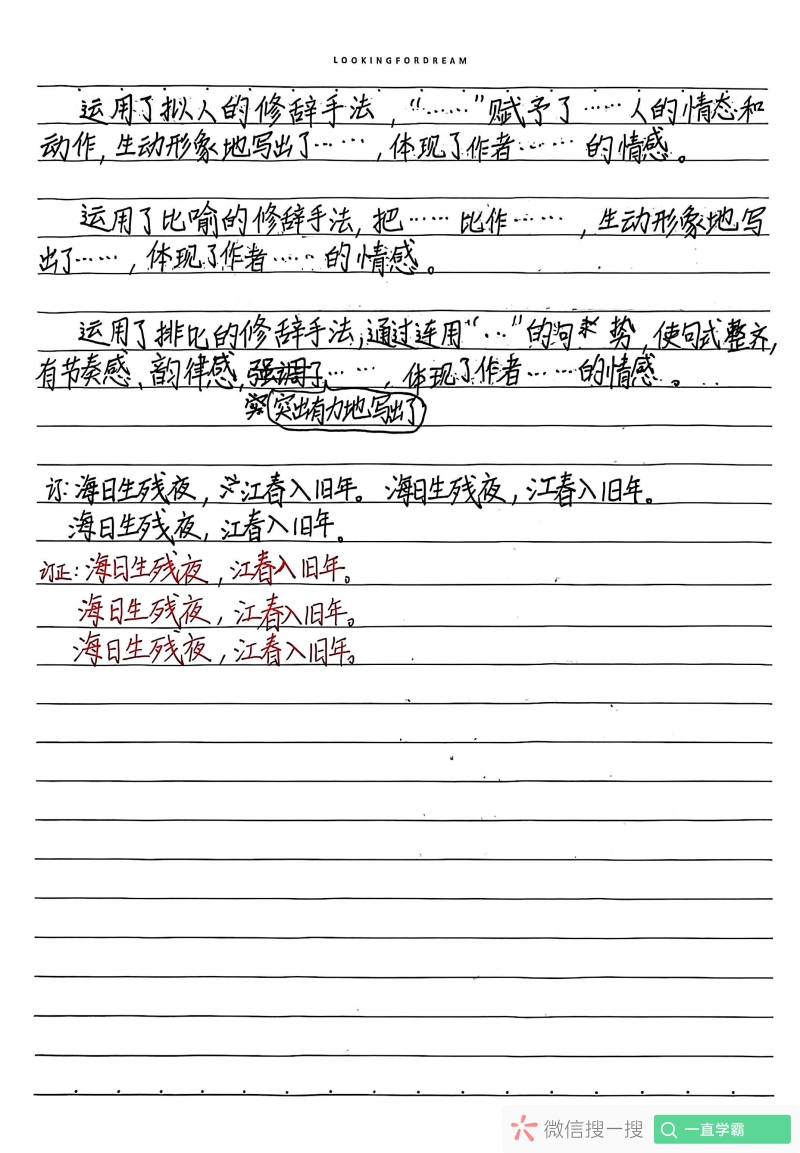 LOOKINGFORDREAM
运用了拟人的修辞手法，“……”赋予了……人的情态和
动作，生动形象地写出了……，体现了作者……的情感。
运用了比喻的修辞手法，把……比作……，生动形象地写
出了……，体现了作者……的情感。
运用了排比的修辞手法，通过连用“…”的句式，使句式整齐，
有节奏感、韵律感，强调了……，体现了作者……的情感。
突出有力地写出了
订：海日生残夜，江春入旧年。海日生残夜，江春入旧年。
海日生残夜，江春入旧年。
订正：海日生残夜，江春入旧年。
海日生残夜，江春入旧年。
海日生残夜，江春入旧年。
微信搜一搜 一直学霸